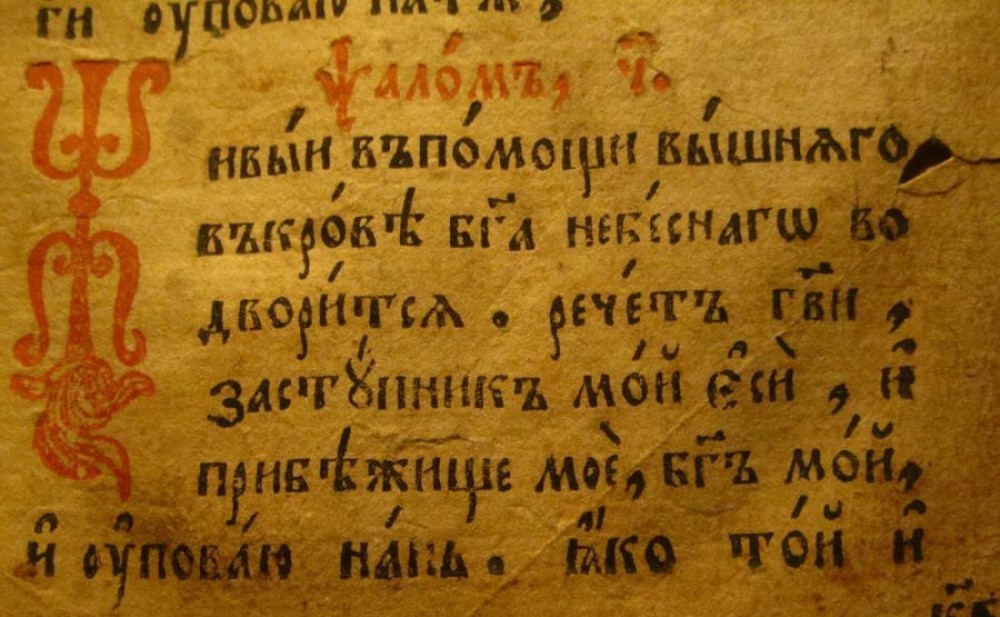 ѱало́мъ, ч҃.
Живы́и въпо́мощи вы́шнѧго,
въкро́вѣ бг҃а небе́снагѡ во
двори́тсѧ . рече́тъ гв҃и ,
застꙋ́пникъ мо́й є҆сѝ , и҆
прибѣжище моѐ, бг҃ъ мо́й,
и҆ оуповаю на́нь . ꙗ҆́ко то́й и҆